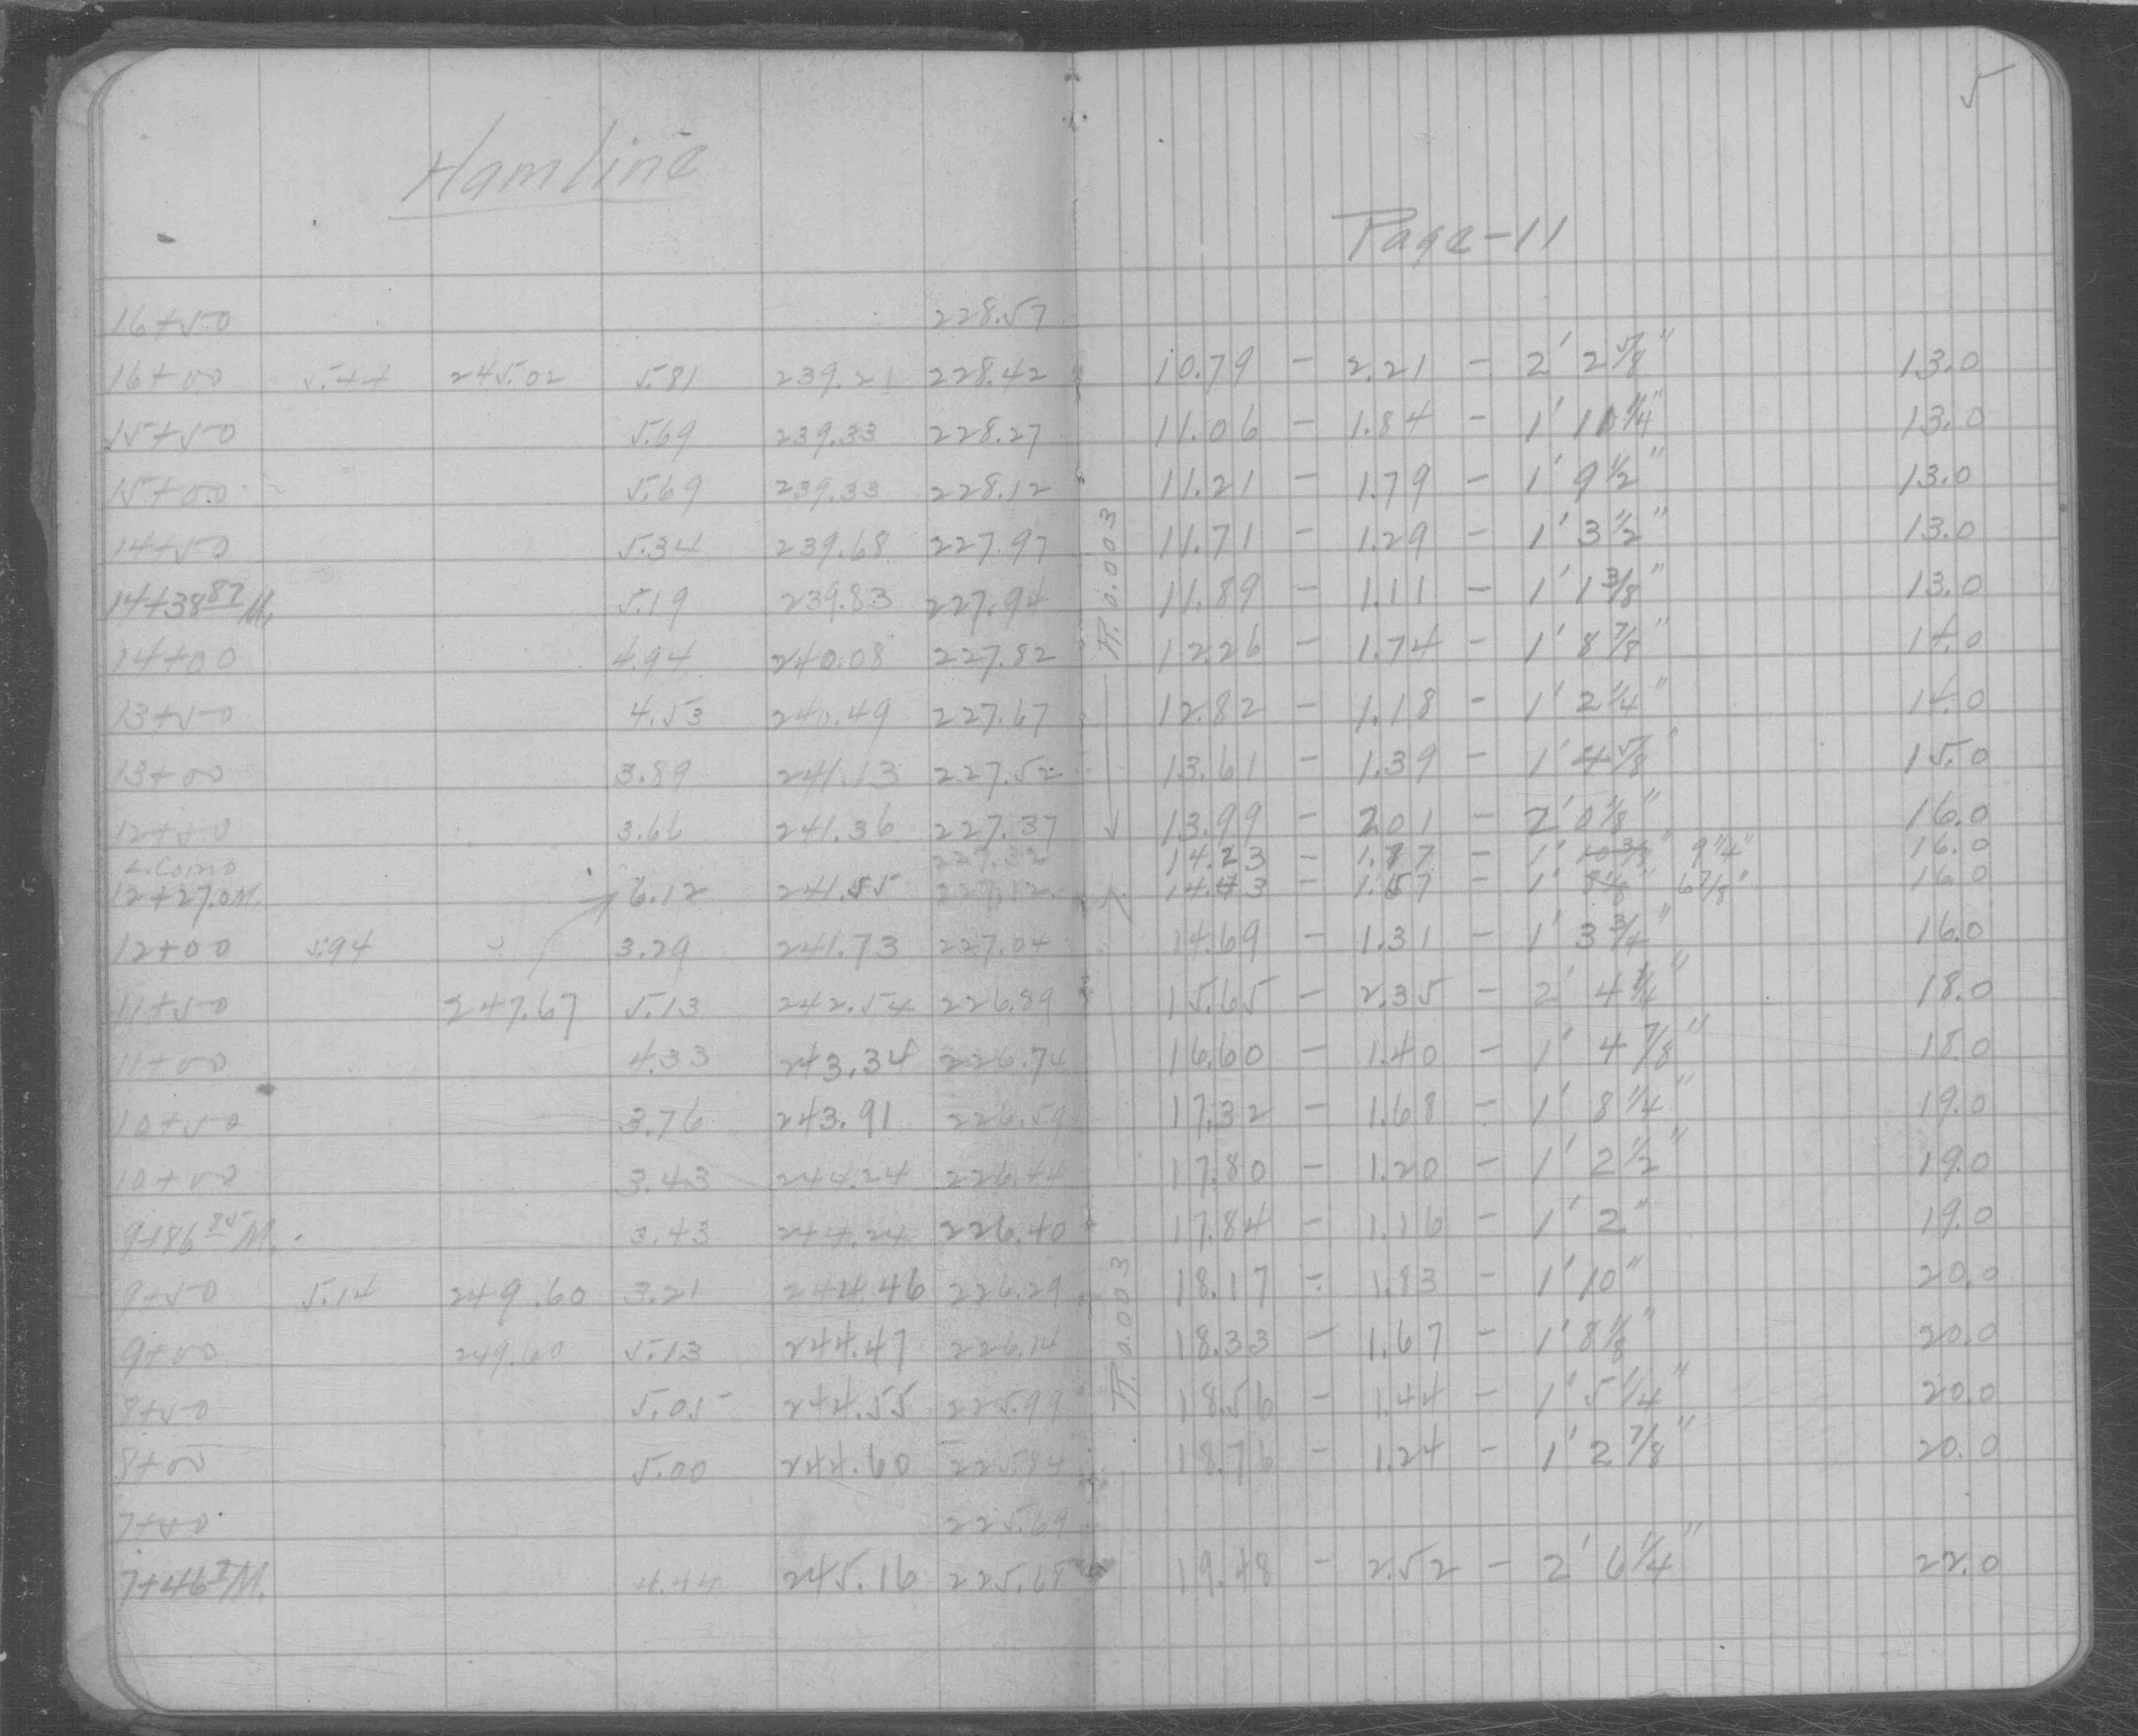 5
Hamline
Page-11
16+50 228.57
16+00 5.44 245.02 5.81 239.21 228.42 10.79 - 2.21 - 2' 2 5/8" 13.0
15+50 5.69 239.33 228.27 11.06 - 1.84 - 1' 11 1/4" 13.0
15+00 5.69 239.33 228.12 11.21 - 1.79 - 1' 9 1/2" 13.0
14+50 5.34 239.68 227.97 11.71 - 1.29 - 1' 3 1/2" 13.0
14+38 87 M. 5.19 239.83 227.94 11.89 - 1.11 - 1' 1 3/8" 13.0
14+00 4.94 240.08 227.82 12.26 - 1.74 - 1' 8 7/8" 14.0
13+50 4.53 240.49 227.67 12.82 - 1.18 - 1' 2 1/4" 14.0
13+00 3.89 241.13 227.52 13.61 - 1.39 - 1' 4 5/8" 15.0
12+50 3.66 241.36 227.37 13.99 - 2.01 - 2' 0 1/8" 16.0
227.32 14.23 - 1.77 - 1' 10 3/8" 9 1/4" 16.0
12+27.0M. 6.12 241.55 227.12 14.43 - 1.57 - 1' 8 1/8" 6 7/8" 16.0
12+00 5.94 3.29 241.73 227.04 14.69 - 1.31 - 1' 3 3/4" 16.0
11+50 247.67 5.13 242.54 226.89 15.65 - 2.35 - 2' 4 1/4" 18.0
11+00 4.33 243.34 226.74 16.60 - 1.40 - 1' 4 7/8" 18.0
10+50 3.76 243.91 226.59 17.32 - 1.68 - 1' 8 1/4" 19.0
10+00 3.43 244.24 226.44 17.80 - 1.20 - 1' 2 1/2" 19.0
9+86 85 M. 3.43 244.24 226.40 17.84 - 1.16 - 1' 2" 19.0
9+50 5.14 249.60 3.21 244.46 226.29 18.17 - 1.83 - 1' 10" 20.0
9+00 249.60 5.13 244.47 226.14 18.33 - 1.67 - 1' 8 1/8" 20.0
8+50 5.05 244.55 225.99 18.56 - 1.44 - 1' 5 1/4" 20.0
8+00 5.00 244.60 225.84 18.76 - 1.24 - 1' 2 7/8" 20.0
7+50 225.69
7+46 2 M. 4.44 245.16 225.68 19.48 - 2.52 - 2' 6 1/4" 22.0
0.003
0.003